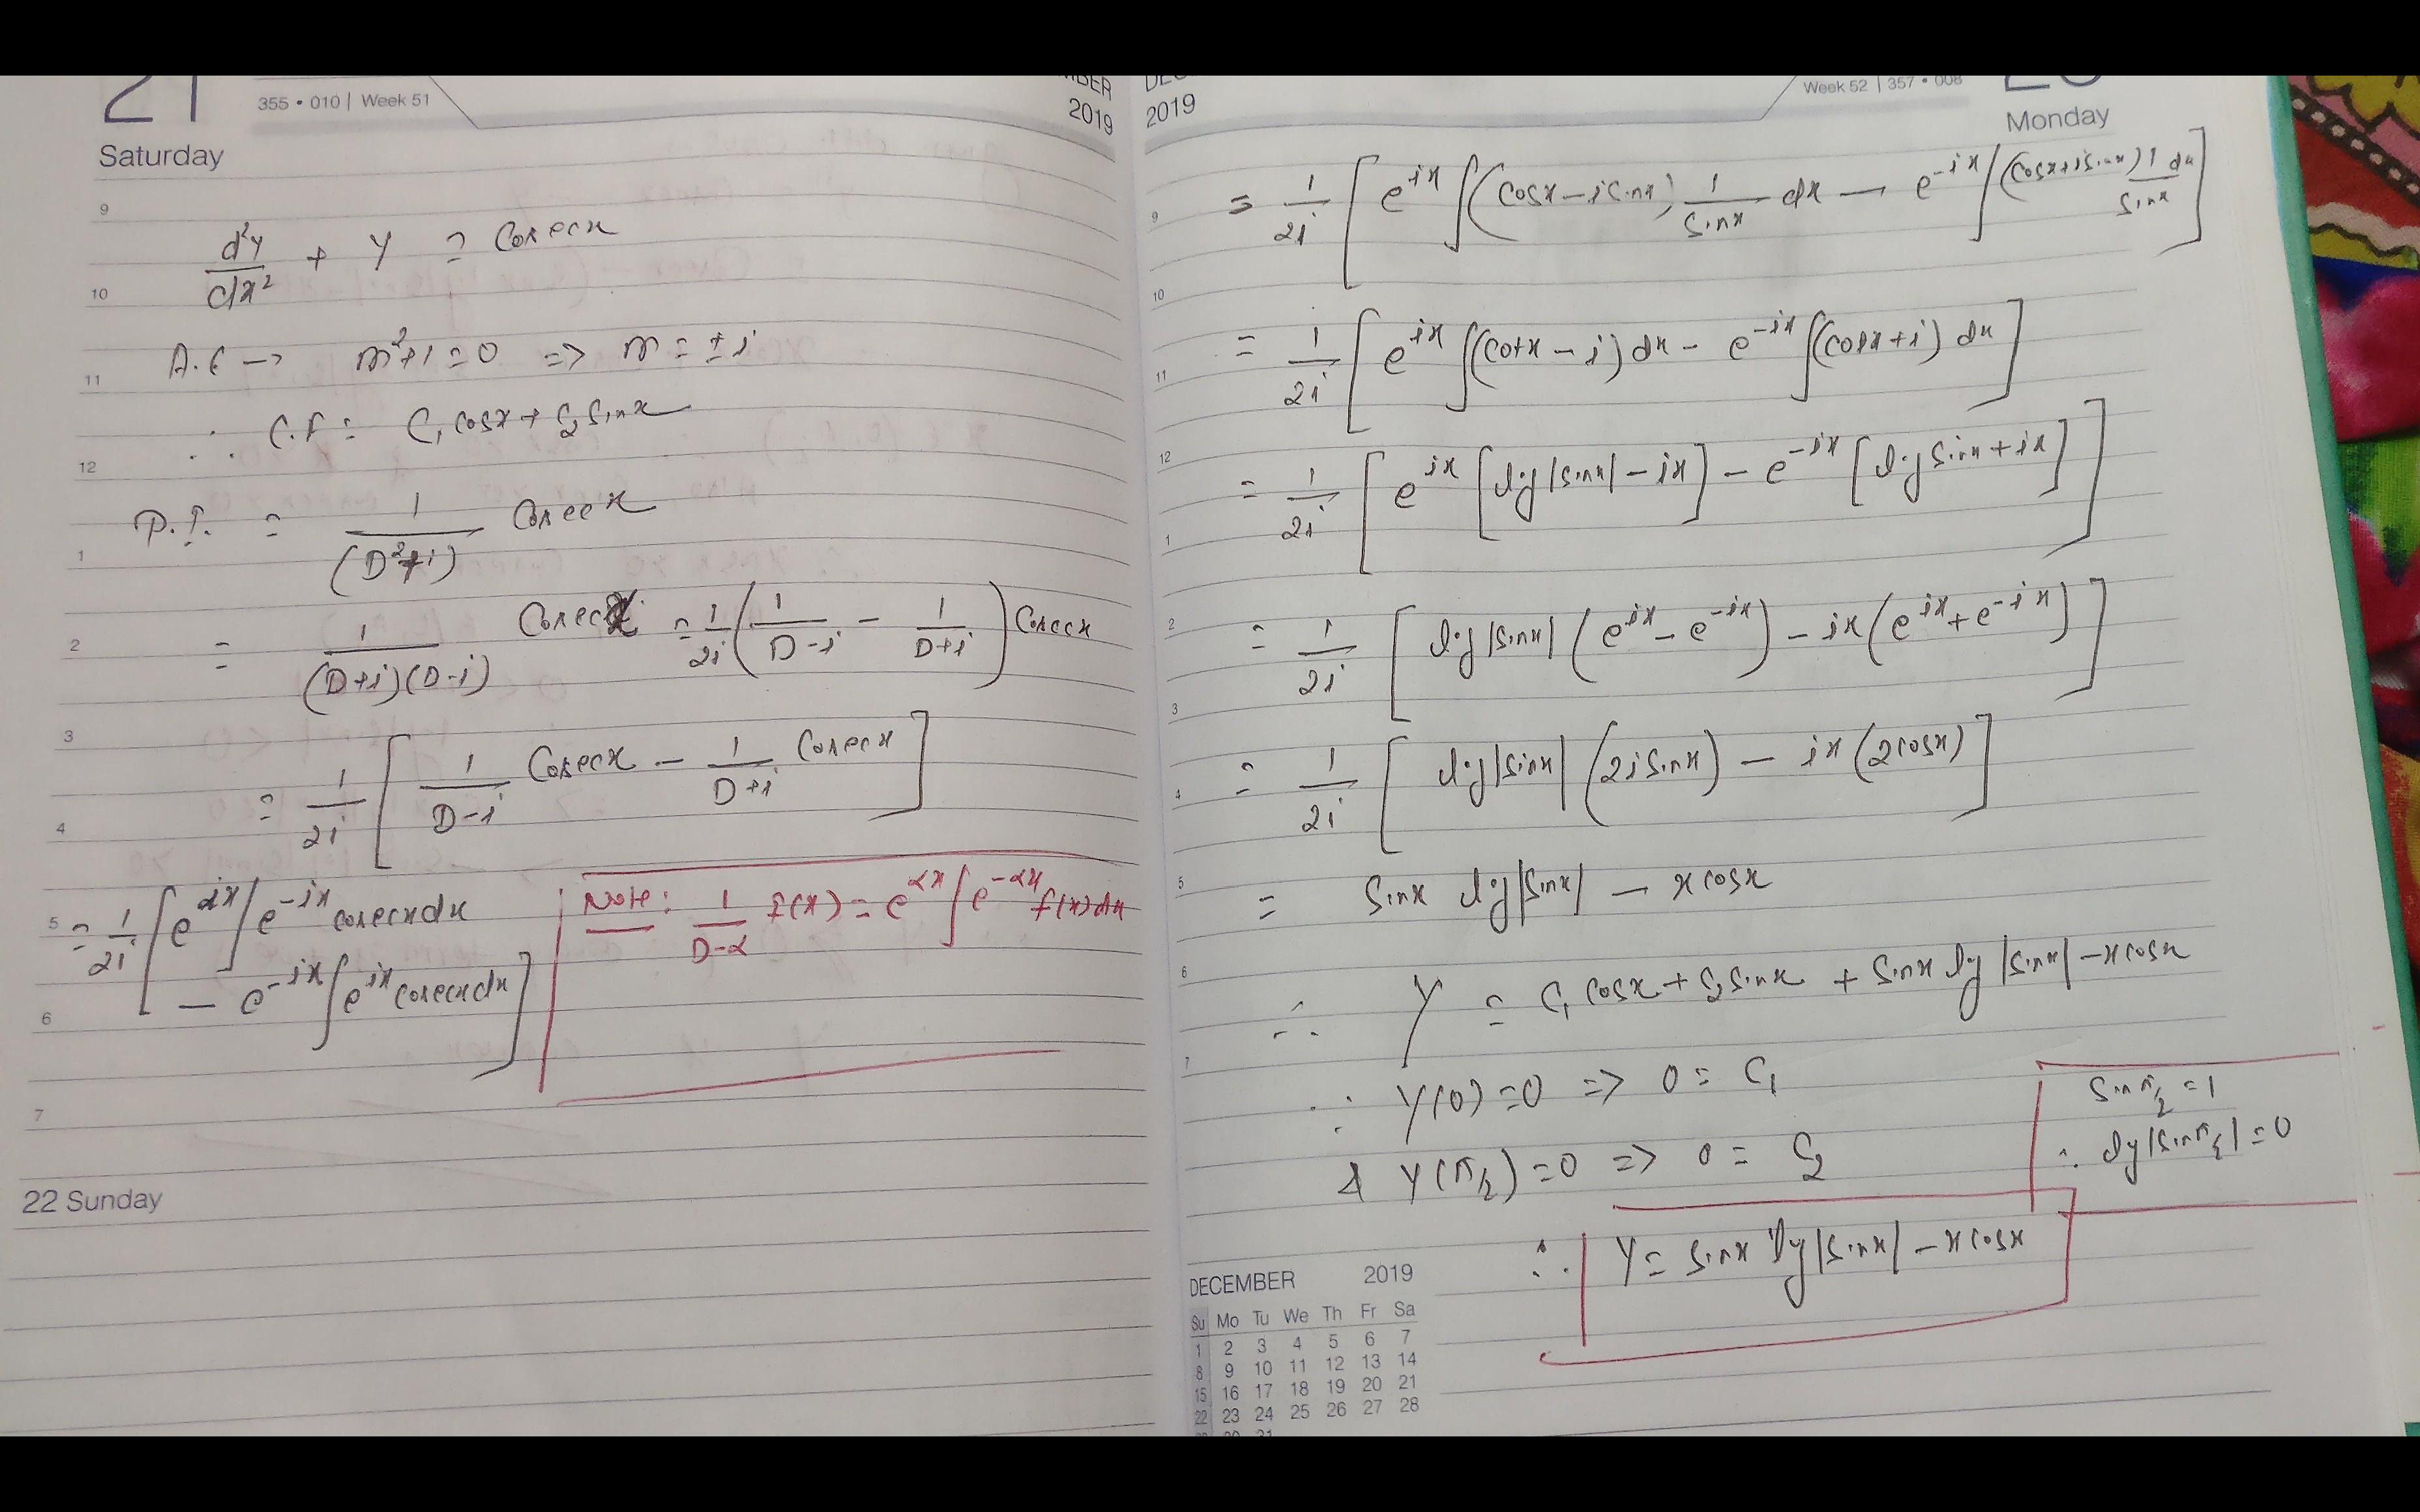 21
355 • 010 | Week 51
2019
Saturday
9
d²y/dx² + y = Cosecx
10
A.E → m²+1=0 => m = ±i
11
∴ C.F = C₁cosx + C₂sinx
12
P.I. = 1/(D²+1) Cosecx
1
2
= 1/((D+i)(D-i)) Cosecx = 1/2i (1/(D-i) − 1/(D+i)) Cosecx
3
= 1/2i [ 1/(D-i) Cosecx − 1/(D+i) Cosecx ]
4
5
= 1/2i [ e^ix ∫ e^-ix cosecx dx
− e^-ix ∫ e^ix cosecx dx ]
6
Note: 1/(D-α) f(x) = e^αx ∫ e^-αx f(x) dx
7
22 Sunday
2019
Week 52 | 357 • 008
Monday
9
= 1/2i [ e^ix ∫ (cosx − isinx) 1/sinx dx − e^-ix ∫ (cosx+isinx) 1/sinx dx ]
10
= 1/2i [ e^ix ∫ (cotx − i) dx − e^-ix ∫ (cotx + i) dx ]
11
12
= 1/2i [ e^ix [log|sinx| − ix] − e^-ix [log sinx + ix] ]
1
2
= 1/2i [ log|sinx| (e^ix − e^-ix) − ix (e^ix + e^-ix) ]
3
= 1/2i [ log|sinx| (2isinx) − ix (2cosx) ]
4
5
= sinx log|sinx| − xcosx
6
∴ y = C₁cosx + C₂sinx + sinx log|sinx| − xcosx
7
∵ y(0)=0 => 0 = C₁
& y(π/2)=0 => 0 = C₂
sin π/2 = 1
∴ log|sin π/2| = 0
∴ y = sinx log|sinx| − xcosx
DECEMBER 2019
Su Mo Tu We Th Fr Sa
1 2 3 4 5 6 7
8 9 10 11 12 13 14
15 16 17 18 19 20 21
22 23 24 25 26 27 28